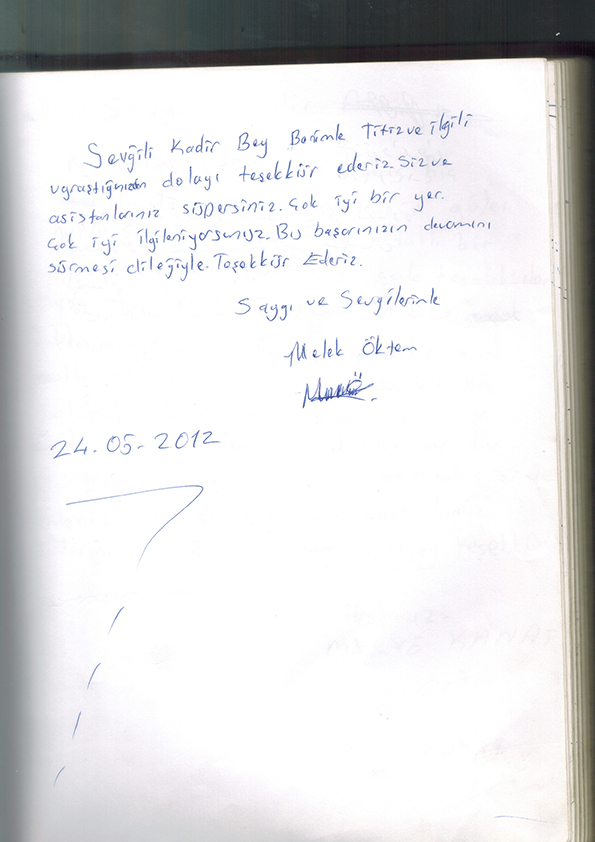 Sevğili Kadir Bey Benimle Titiz ve ilgili
uğraştığınızdan dolayı teşekkür ederiz. Siz ve
asistanlarınız süpersiniz. Çok iyi bir yer.
Çok iyi ilgileniyorsunuz. Bu başarınızın devamını
sürmesi dileğiyle. Teşekkür Ederiz.
Saygı ve Sevgilerimle
Melek Öktem
24.05.2012